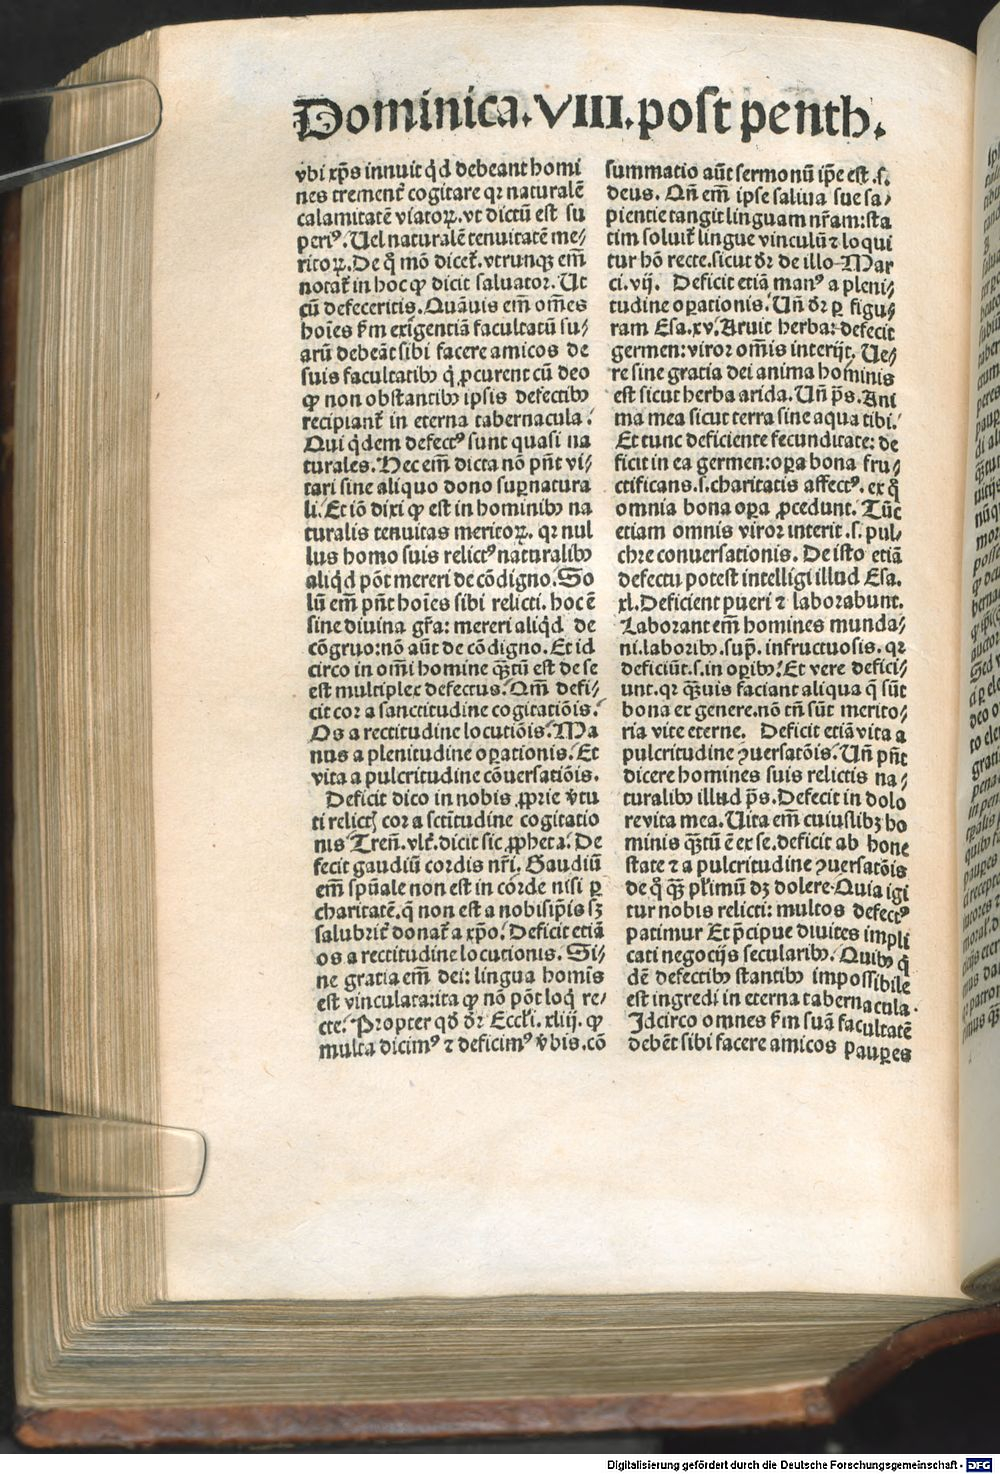 Dominica.VIII.post penth.
vbi xp̄s innuit q̇d debeant homi
nes trement̄ cogitare qꝛ naturalē
calamitatē viatoꝝ.vt dictū est su
peri⁹. Uel naturalē tenuitatē me⸗
ritoꝝ.De q̊ mō dicet̄.vtrunqꝫ em̄
notat̄ in hoc ꝙ dicit saluator. Ut
cū defeceritis. Quāuis em̄ om̄es
hoīes ẜm exigentiā facultatū su⸗
arū debeāt sibi facere amicos de
suis facultatibꝰ q̇ ꝓcurent cū deo
ꝙ non obstantibꝰ ipsis defectibꝰ
recipiant̄ in eterna tabernacula.
Qui q̇dem defect⁹ sunt quasi na
turales. Hec em̄ dicta nō pn̄t vi⸗
tari sine aliquo dono suꝑnatura
li. Et iō dixi ꝙ est in hominibꝰ na
turalis tenuitas meritoꝝ. qꝛ nul
lus homo suis relict⁹ naturalibꝰ
aliq̇d pōt mereri de cōdigno. So
lū em̄ pn̄t hoīes sibi relicti. hoc ē
sine diuina gr̄a: mereri aliq̇d de
cōgruo: nō aūt de cōdigno. Et id
circo in om̄i homine qꝫtū est de se
est multiplex defectus. Qm̄ defi⸗
cit cor a sanctitudine cogitatiōis.
Os a rectitudine locutiōis. Ma
nus a plenitudine oꝑationis. Et
vita a pulcritudine cōuersatiōis.
Deficit dico in nobis ꝓprie v̄tu
ti relict cor a sctitudine cogitatio
nis Tren̄. vlt̄. dicit sic ꝓpheta. De
fecit gaudiū cordis nr̄i. Gaudiū
em̄ spūale non est in corde nisi ꝑ
charitatē. q̄ non est a nobisip̄is sꝫ
salubrit̄ donat̄ a xp̄o. Deficit etiā
os a rectitudine locutionis. Si⸗
ne gratia em̄ dei: lingua homīs
est vinculata: ita ꝙ nō pōt loq̇ re⸗
cte. Propter qd̄ dr̄ Eccłi. xliij. ꝙ
multa dicim⁹ ⁊ deficim⁹ v̄bis. cō
summatio aūt sermonū ip̄e est .s.
deus. Qn̄ em̄ ipse saliua sue sa⸗
pientie tangit linguam nr̄am: sta
tim soluit̄ lingue vinculū ⁊ loqui
tur hō recte. sicut dr̄ de illo Mar
ci. vij. Deficit etiā man⁹ a pleni⸗
tudine oꝑationis. Un̄ dr̄ ꝑ figu⸗
ram Esa. xv. Aruit herba: defecit
germen: viror om̄is interijt. Ue⸗
re sine gratia dei anima hominis
est sicut herba arida. Un̄ p̄s. Ani
ma mea sicut terra sine aqua tibi.
Et tunc deficiente fecunditate: de
ficit in ea germen: oꝑa bona fru⸗
ctificans .s. charitatis affect⁹. ex q̊
omnia bona oꝑa ꝓcedunt. Tūc
etiam omnis viror interit .s. pul⸗
chre conuersationis. De isto etiā
defectu potest intelligi illud Esa.
xl. Deficient pueri ⁊ laborabunt.
Laborant em̄ homines munda⸗
ni. laboribꝰ. sup̄. infructuosis. qꝛ
deficiūt .s. in oꝑibꝰ. Et vere defici⸗
unt. qꝛ qꝫuis faciant aliqua q̄ sūt
bona ex genere. nō tn̄ sūt merito⸗
ria vite eterne. Deficit etiā vita a
pulcritudine ꝯuersatōis. Un̄ pn̄t
dicere homines suis relictis na⸗
turalibꝰ illud p̄s. Defecit in dolo
re vita mea. Uita em̄ cuiuslibꝫ ho
minis qꝫtū ē ex se. deficit ab hone
state ⁊ a pulcritudine ꝯuersatōis
de q̊ qꝫ pl̄imū dꝫ dolere. Quia igi
tur nobis relicti: multos defect⁹
patimur Et p̄cipue diuites impli
cati negocijs secularibꝰ. Quibꝰ q̇
dē defectibꝰ stantibꝰ impossibile
est ingredi in eterna tabernacula.
Idcirco omnes ẜm suā facultatē
debēt sibi facere amicos pauꝑes
Digitalisierung gefördert durch die Deutsche Forschungsgemeinschaft - DFG